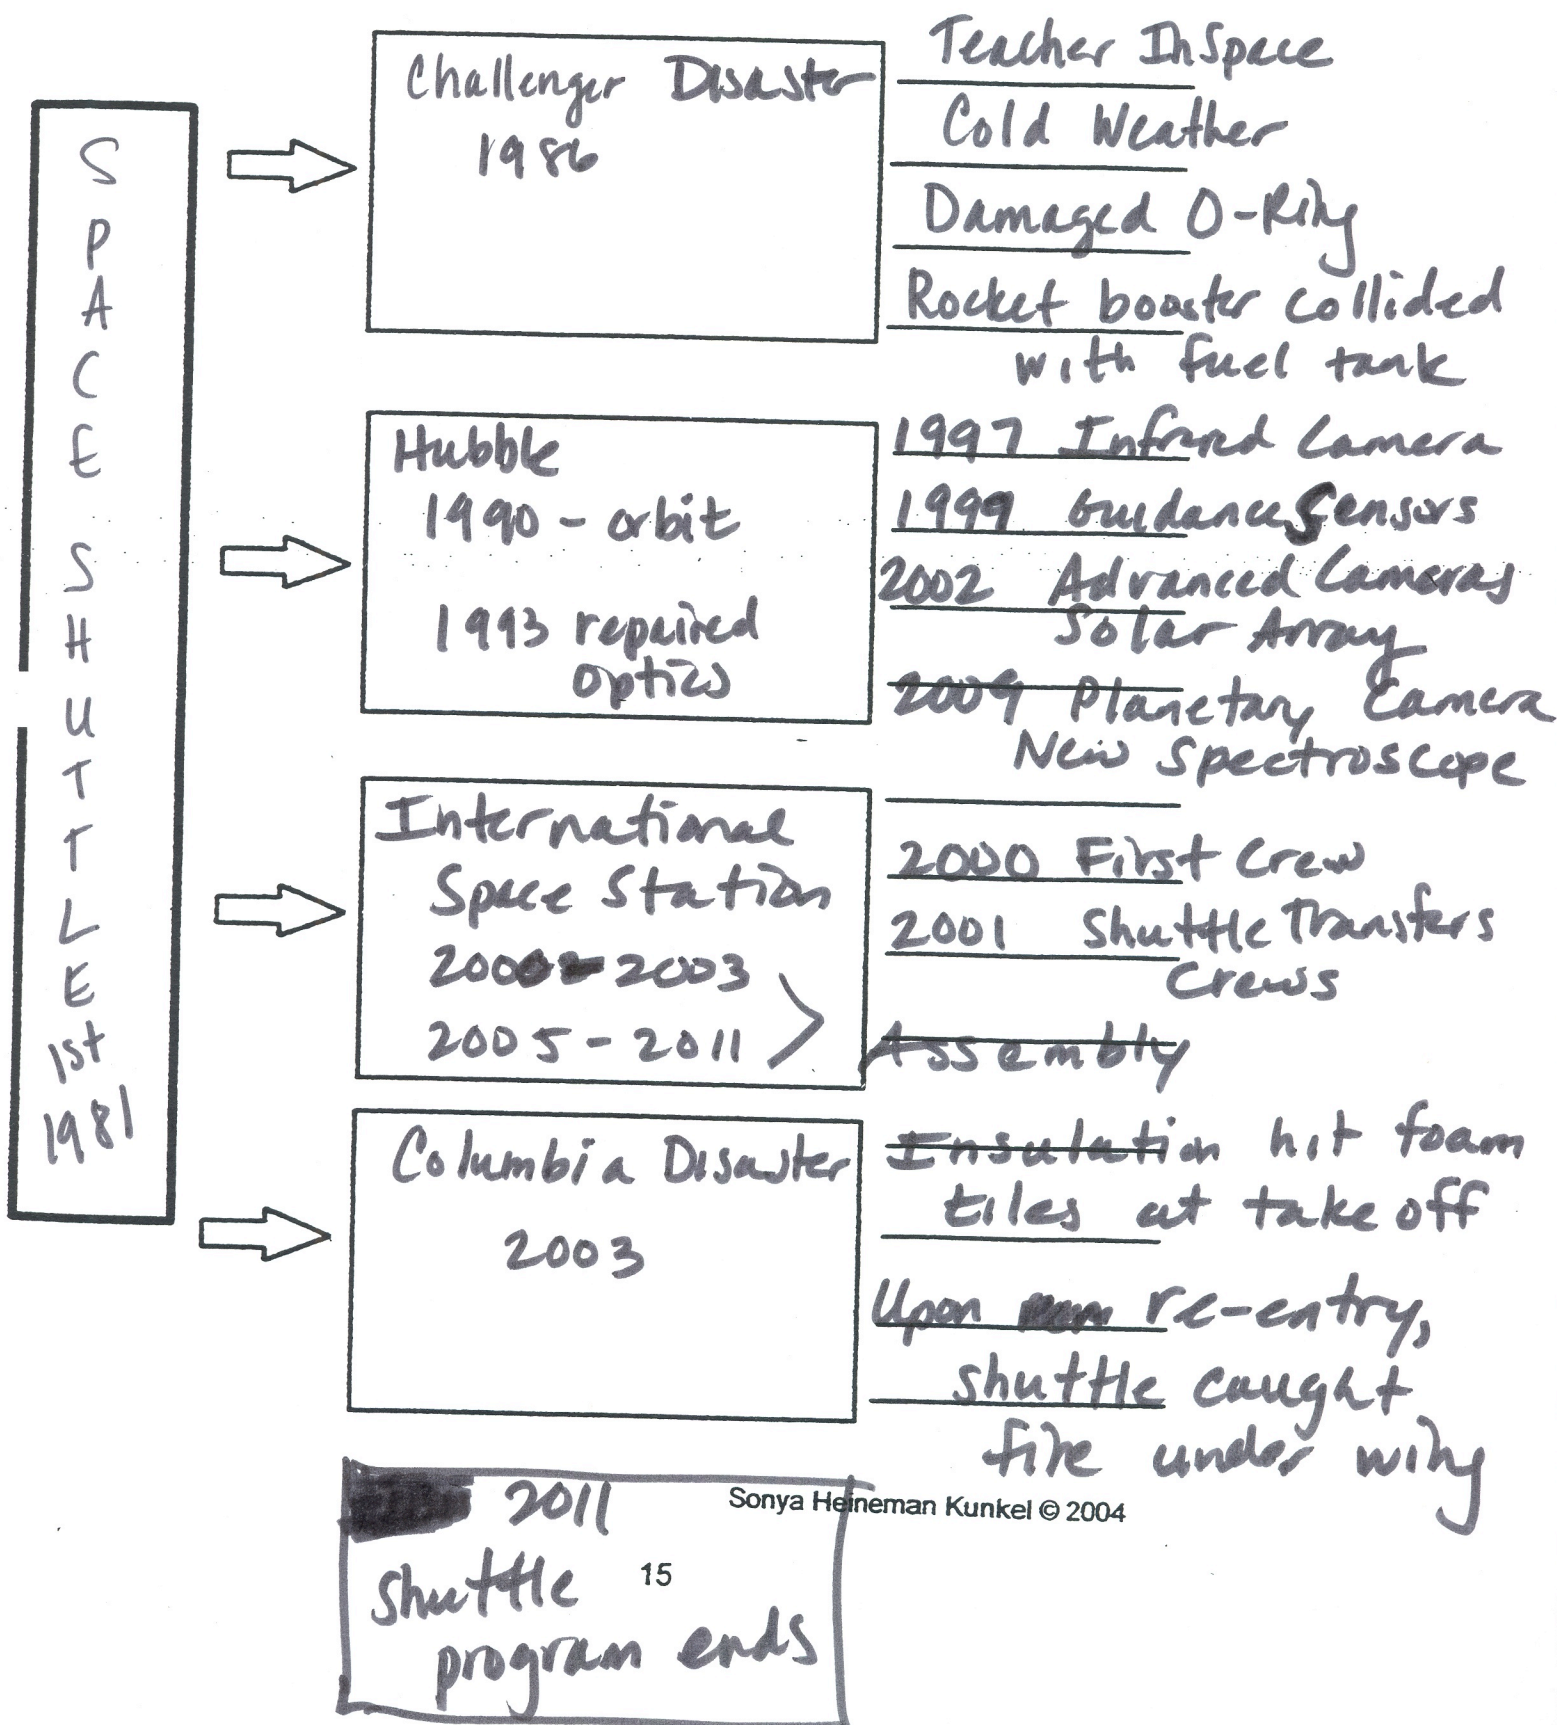 SPACE SHUTTLE
1st
1981
Challenger Disaster
1986
Teacher In Space
Cold Weather
Damaged O-Ring
Rocket booster collided
with fuel tank
Hubble
1990 - orbit
1993 repaired
optics
1997 Infrared Camera
1999 Guidance Sensors
2002 Advanced Cameras
Solar Array
2009 Planetary Camera
New Spectroscope
International
Space Station
2000-2003
2005-2011
2000 First Crew
2001 Shuttle Transfers
Crews
Assembly
Columbia Disaster
2003
Insulation hit foam
tiles at take off
Upon re-entry,
shuttle caught
fire under wing
2011
Shuttle
program ends
Sonya Heineman Kunkel © 2004
15